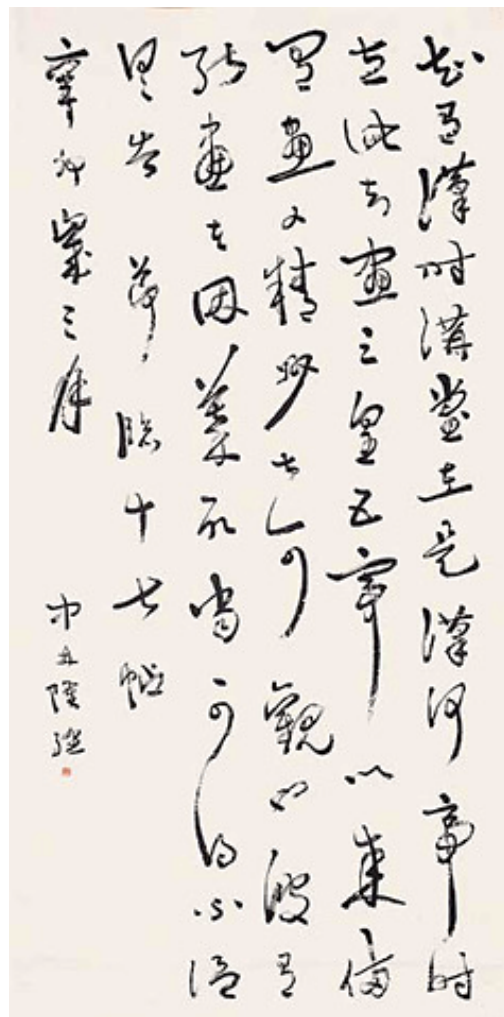 知有漢時講堂在是漢何帝時
立此知畫三皇五帝以來備
有畫又精妙甚可觀也彼有
能畫者因摹取當可得不信
具告 節臨十七帖
辛卯歲三
陸